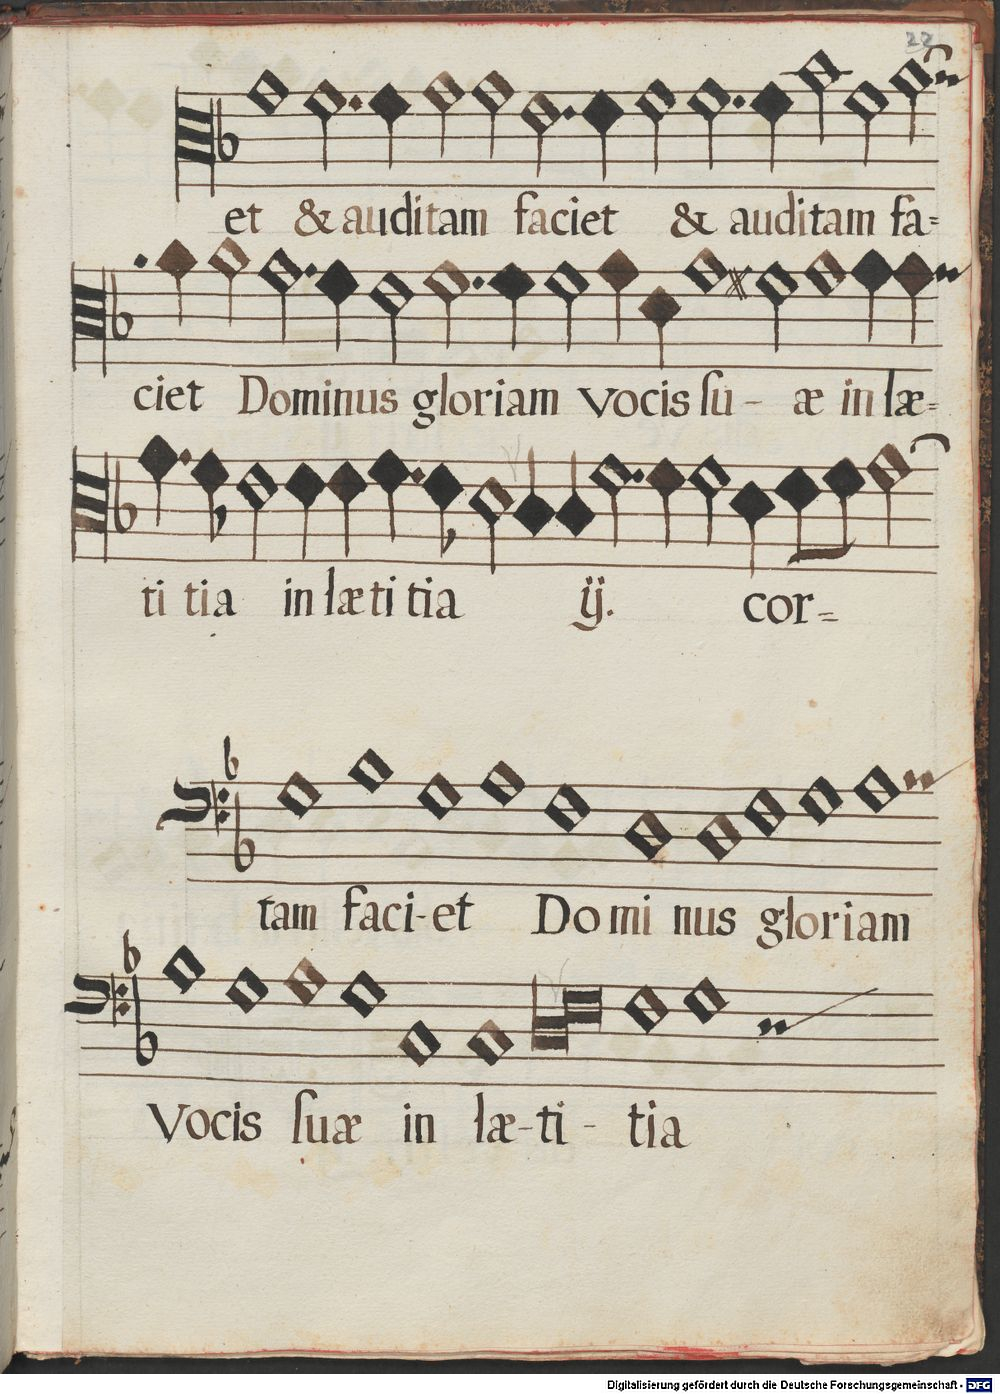 22
et & auditam faciet & auditam fa=
ciet Dominus gloriam vocis su - æ in læ=
ti tia in læti tia ij. cor=
tam faci-et Domi nus gloriam
vocis suæ in læ-ti - tia
Digitalisierung gefördert durch die Deutsche Forschungsgemeinschaft - DFG